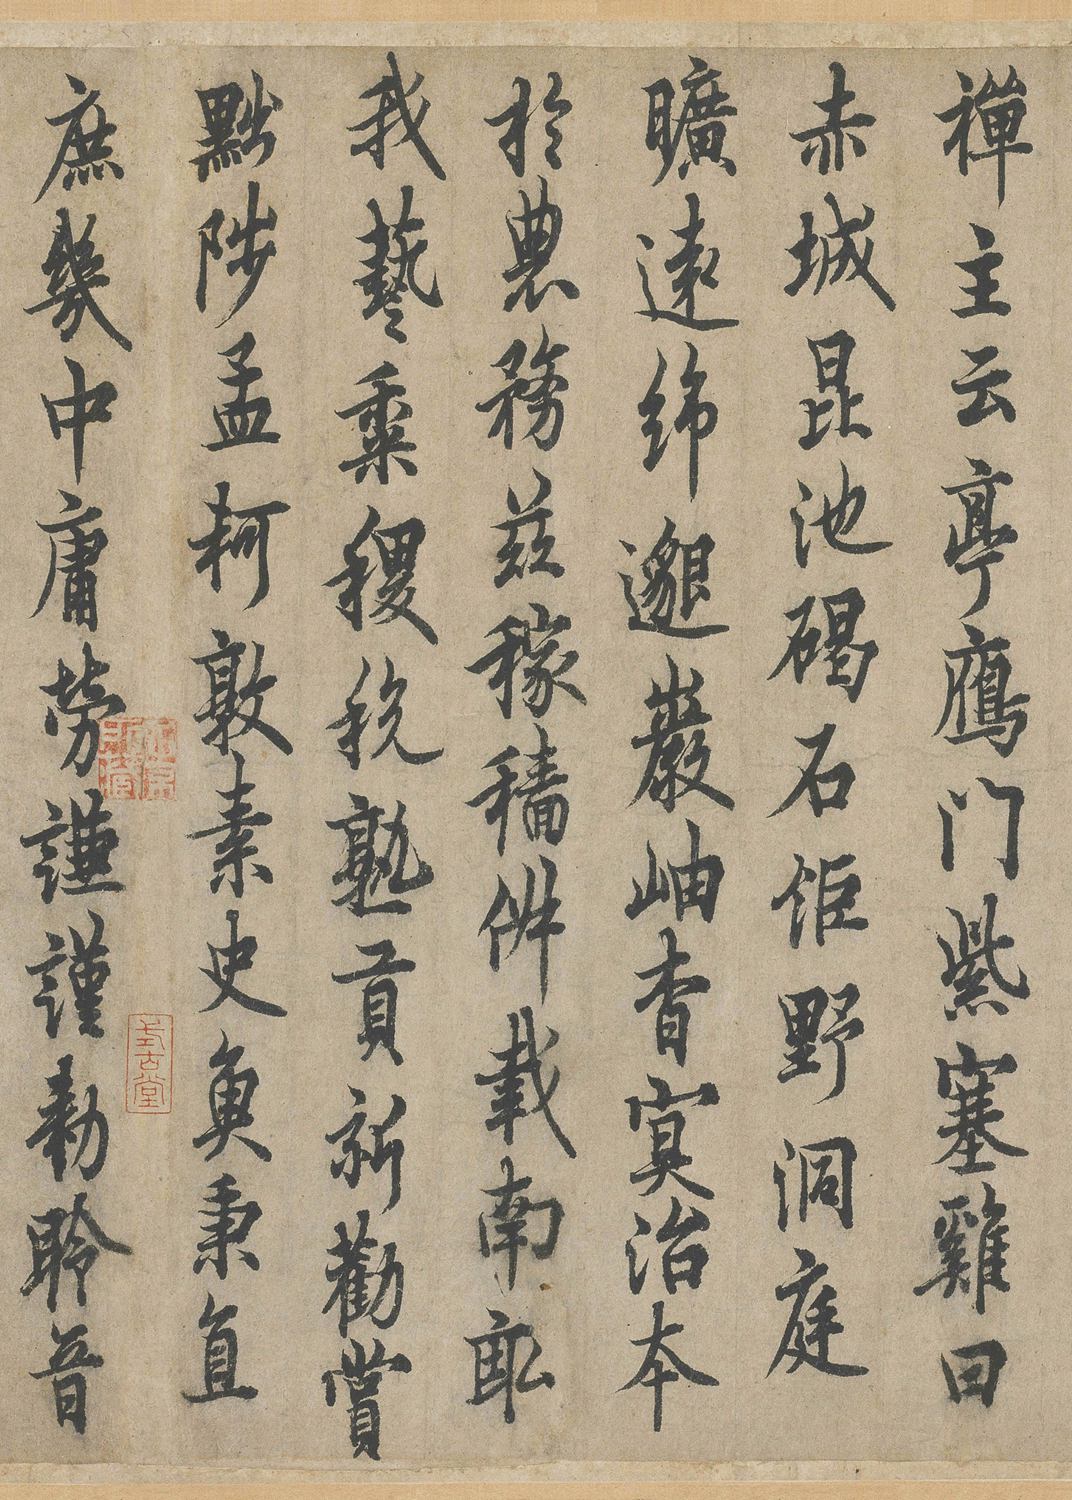 禪主云亭鴈門紫塞雞曰
赤城昆池碣石鉅野洞庭
曠遠綿邈巖岫杳冥治本
於農務茲稼穡俶載南畝
我藝黍稷稅熟貢新勸賞
黜陟孟軻敦素史魚秉直
庶幾中庸勞謙謹勑聆音
式古堂